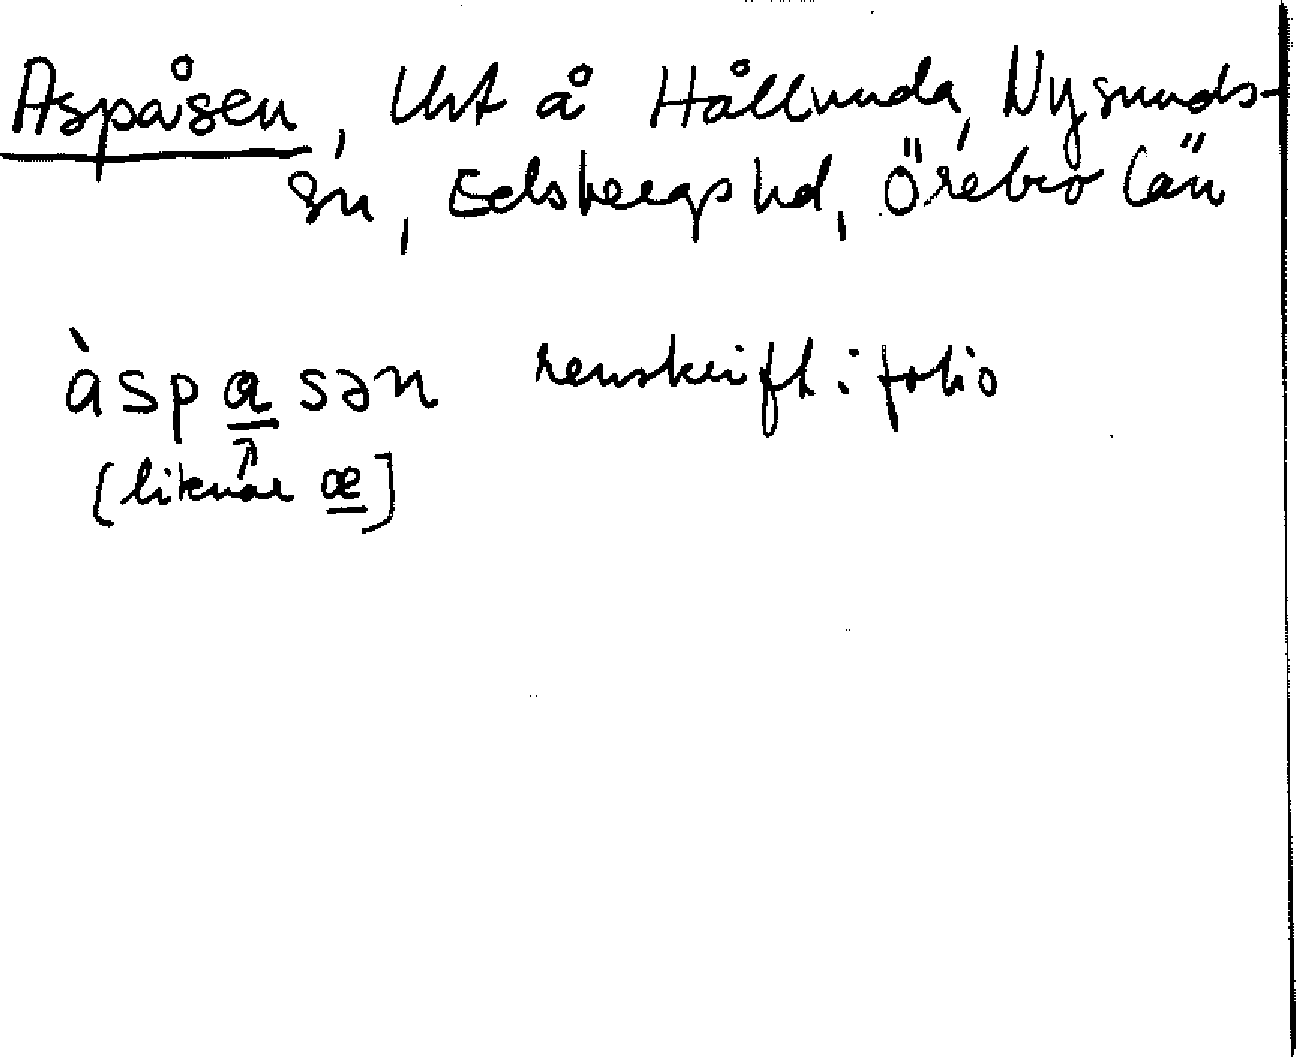 Aspåsen, Uht å Hållunda, Nysunds-
sn, Edsbergs hd, Örebro län
àspasən renskrift i folio
[liknar œ]